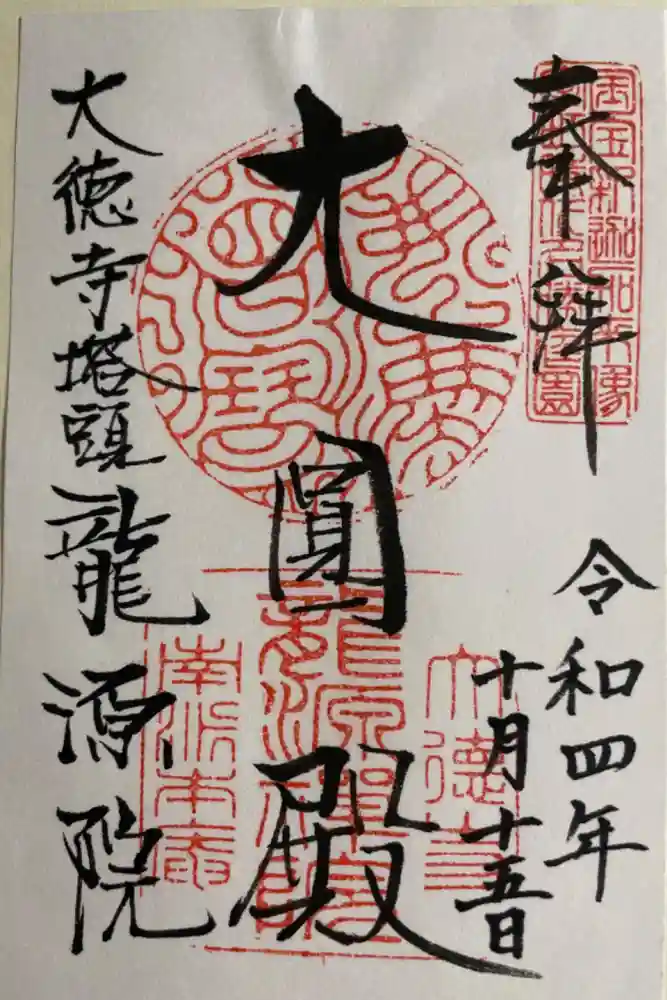 奉拝
令和四年
十月十五日
大圓殿
大徳寺塔頭龍源院